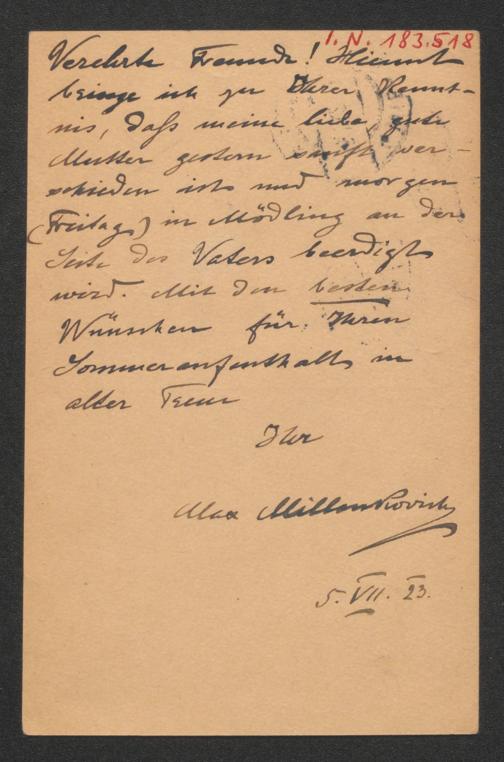 I. N. 183.518
Verehrte Freunde! Hiermit
bringe ich zu Ihrer Kennt-
nis, daß meine liebe, gute
Mutter gestern sanft ver-
schieden ist und morgen
(Freitag) in Mödling an der
Seite des Vaters beerdigt
wird. Mit den besten
Wünschen für Ihren
Sommeraufenthalt in
alter Treue
Ihr
Max Millenkovich
5. VII. 23.